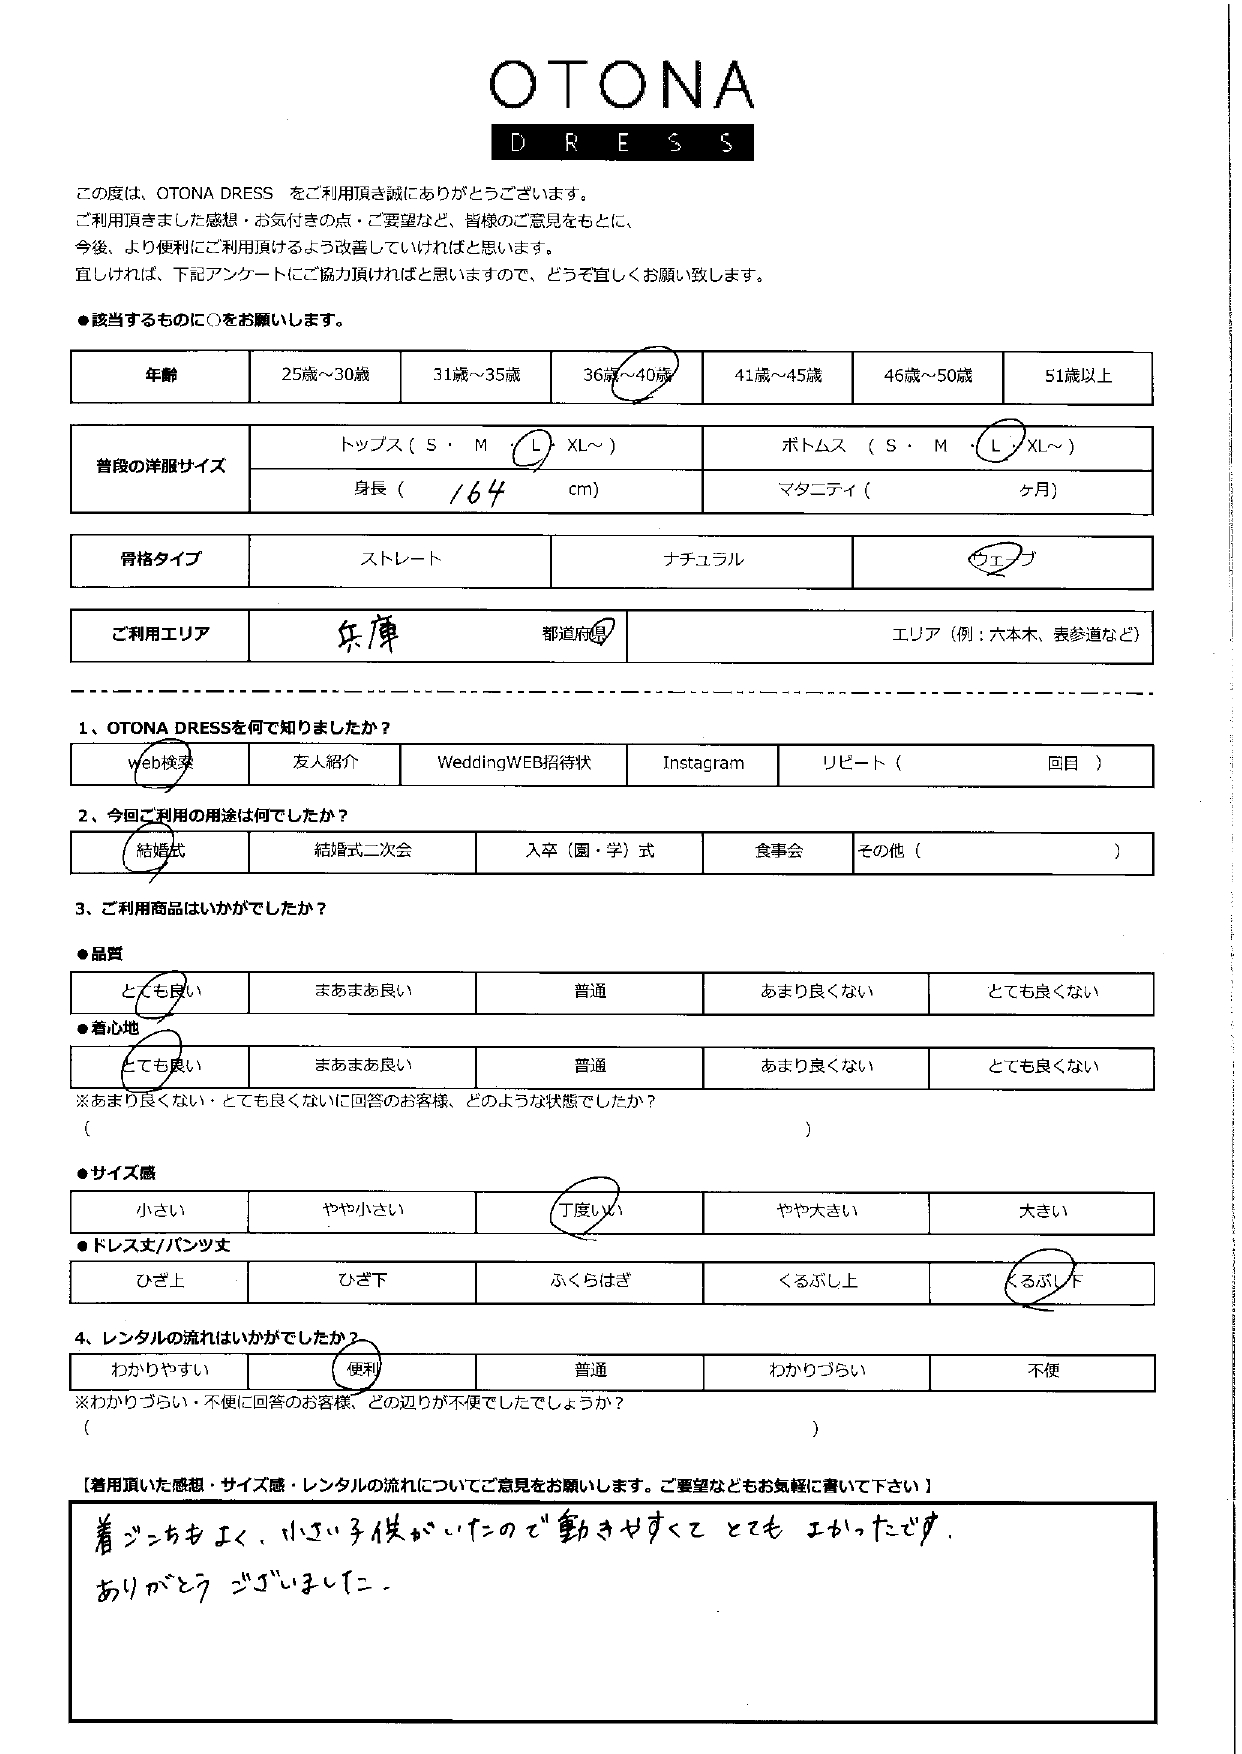 OTONA
DRESS
この度は、OTONA DRESS をご利用頂き誠にありがとうございます。
ご利用頂きました感想・お気付きの点・ご要望など、皆様のご意見をもとに、
今後、より便利にご利用頂けるよう改善していければと思います。
宜しければ、下記アンケートにご協力頂ければと思いますので、どうぞ宜しくお願い致します。
●該当するものに○をお願いします。
年齢 25歳～30歳 31歳～35歳 36歳～40歳 41歳～45歳 46歳～50歳 51歳以上
普段の洋服サイズ トップス ( S ・ M ・ L ・ XL～ ) ボトムス ( S ・ M ・ L ・ XL～ )
身長 ( 164 cm) マタニティ ( ヶ月)
骨格タイプ ストレート ナチュラル ウェーブ
ご利用エリア 兵庫 都道府県 エリア（例：六本木、表参道など）
1、OTONA DRESSを何で知りましたか？
web検索 友人紹介 WeddingWEB招待状 Instagram リピート（ 回目 ）
2、今回ご利用の用途は何でしたか？
結婚式 結婚式二次会 入卒（園・学）式 食事会 その他（ ）
3、ご利用商品はいかがでしたか？
●品質
とても良い まあまあ良い 普通 あまり良くない とても良くない
●着心地
とても良い まあまあ良い 普通 あまり良くない とても良くない
※あまり良くない・とても良くないに回答のお客様、どのような状態でしたか？
( )
●サイズ感
小さい やや小さい 丁度いい やや大きい 大きい
●ドレス丈/パンツ丈
ひざ上 ひざ下 ふくらはぎ くるぶし上 くるぶし下
4、レンタルの流れはいかがでしたか？
わかりやすい 便利 普通 わかりづらい 不便
※わかりづらい・不便に回答のお客様、どの辺りが不便でしたでしょうか？
( )
【着用頂いた感想・サイズ感・レンタルの流れについてご意見をお願いします。ご要望などもお気軽に書いて下さい】
着ごこちもよく、小さい子供がいたので動きやすくて とても よかったです.
ありがとう ございました.